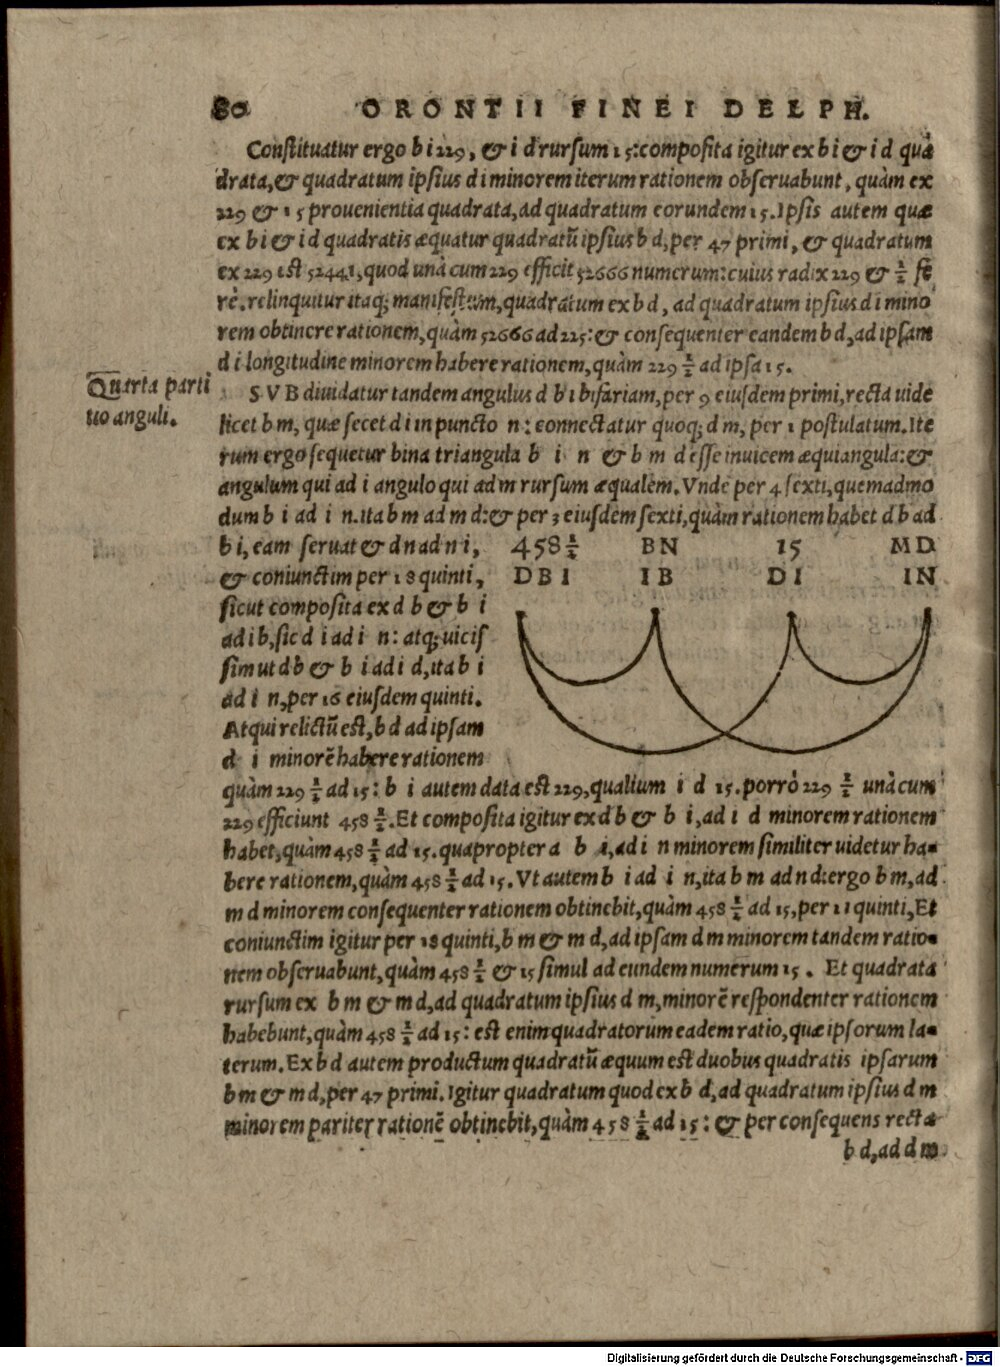 80 ORONTII FINEI DELPH.
Constituatur ergo b i 229, & i d rursum 15: composita igitur ex b i & i d qua
drata, & quadratum ipsius d i minorem iterum rationem obseruabunt, quàm ex
229 & 15 prouenientia quadrata, ad quadratum eorundem 15. Ipsis autem quæ
ex b i & i d quadratis æquatur quadratũ ipsius b d, per 47 primi, & quadratum
ex 229 est 52441, quod unà cum 229 efficit 52666 numerum: cuius radix 229 & 1/2 fe
rè. relinquitur itaq; manifestum, quadratum ex b d, ad quadratum ipsius d i mino
rem obtinere rationem, quàm 52666 ad 225: & consequenter eandem b d, ad ipsam
d i longitudine minorem habere rationem, quàm 229 1/2 ad ipsa 15.
Quarta parti
tio anguli.
SVBdiuidatur tandem angulus d b i bifariam, per 9 eiusdem primi, recta uide
licet b m, quæ secet d i in puncto n: connectatur quoq; d m, per 1 postulatum. Ite
rum ergo sequetur bina triangula b i n & b m d esse inuicem æquiangula: &
angulum qui ad i angulo qui ad m rursum æqualem. Vnde per 4 sexti, quemadmo
dum b i ad i n. ita b m ad m d: & per 3 eiusdem sexti, quàm rationem habet d b ad
b i, eam seruat & d n ad n i,
& coniunctim per 18 quinti,
sicut composita ex d b & b i
ad i b, sic d i ad i n: atq; uicis
sim ut d b & b i ad i d, ita b i
ad i n, per 16 eiusdem quinti.
Atqui relictũ est, b d ad ipsam
d i minorẽ habere rationem
458 1/2 BN 15 MD
DBI IB DI IN
quàm 229 1/2 ad 15: b i autem data est 229, qualium i d 15. porrò 229 1/2 unà cum
229 efficiunt 458 1/2. Et composita igitur ex d b & b i, ad i d minorem rationem
habet, quàm 458 1/2 ad 15. quapropter a b i, ad i n minorem similiter uidetur ha-
bere rationem, quàm 458 1/2 ad 15. Vt autem b i ad i n, ita b m ad n d: ergo b m, ad
m d minorem consequenter rationem obtinebit, quàm 458 1/2 ad 15, per 11 quinti, Et
coniunctim igitur per 18 quinti, b m & m d, ad ipsam d m minorem tandem ratio-
nem obseruabunt, quàm 458 1/2 & 15 simul ad eundem numerum 15. Et quadrata
rursum ex b m & m d, ad quadratum ipsius d m, minorẽ respondenter rationem
habebunt, quàm 458 1/2 ad 15: est enim quadratorum eadem ratio, quæ ipsorum la-
terum. Ex b d autem productum quadratũ æquum est duobus quadratis ipsarum
b m & m d, per 47 primi. Igitur quadratum quod ex b d, ad quadratum ipsius d m
minorem pariter rationẽ obtinebit, quàm 458 1/2 ad 15: & per consequens recta
b d, ad d m
Digitalisierung gefördert durch die Deutsche Forschungsgemeinschaft - DFG